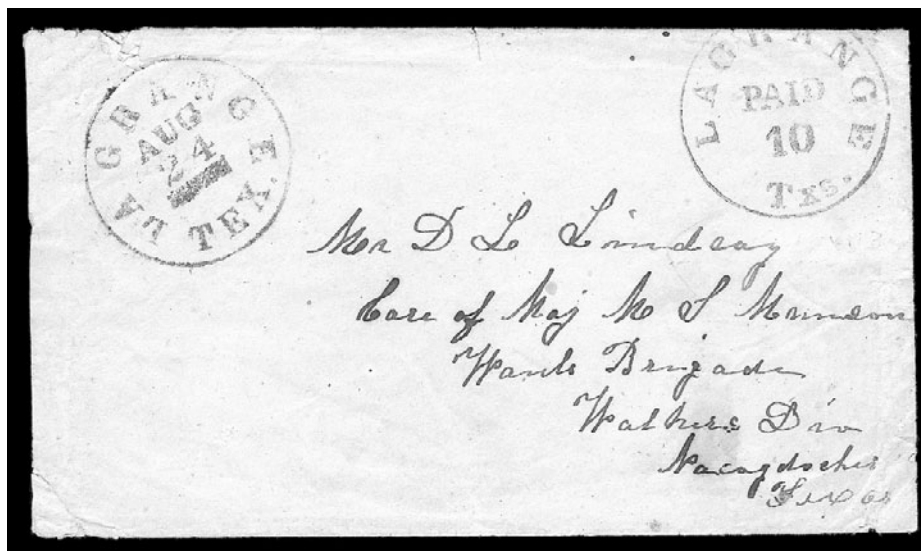 LA GRANGE TEX.
AUG
24
LAGRANGE Txs.
PAID
10
Mr D L Lindsay
Care of Maj M S Munson
Wauls Brigade
Walkers Div
Nacogdoches
Texas